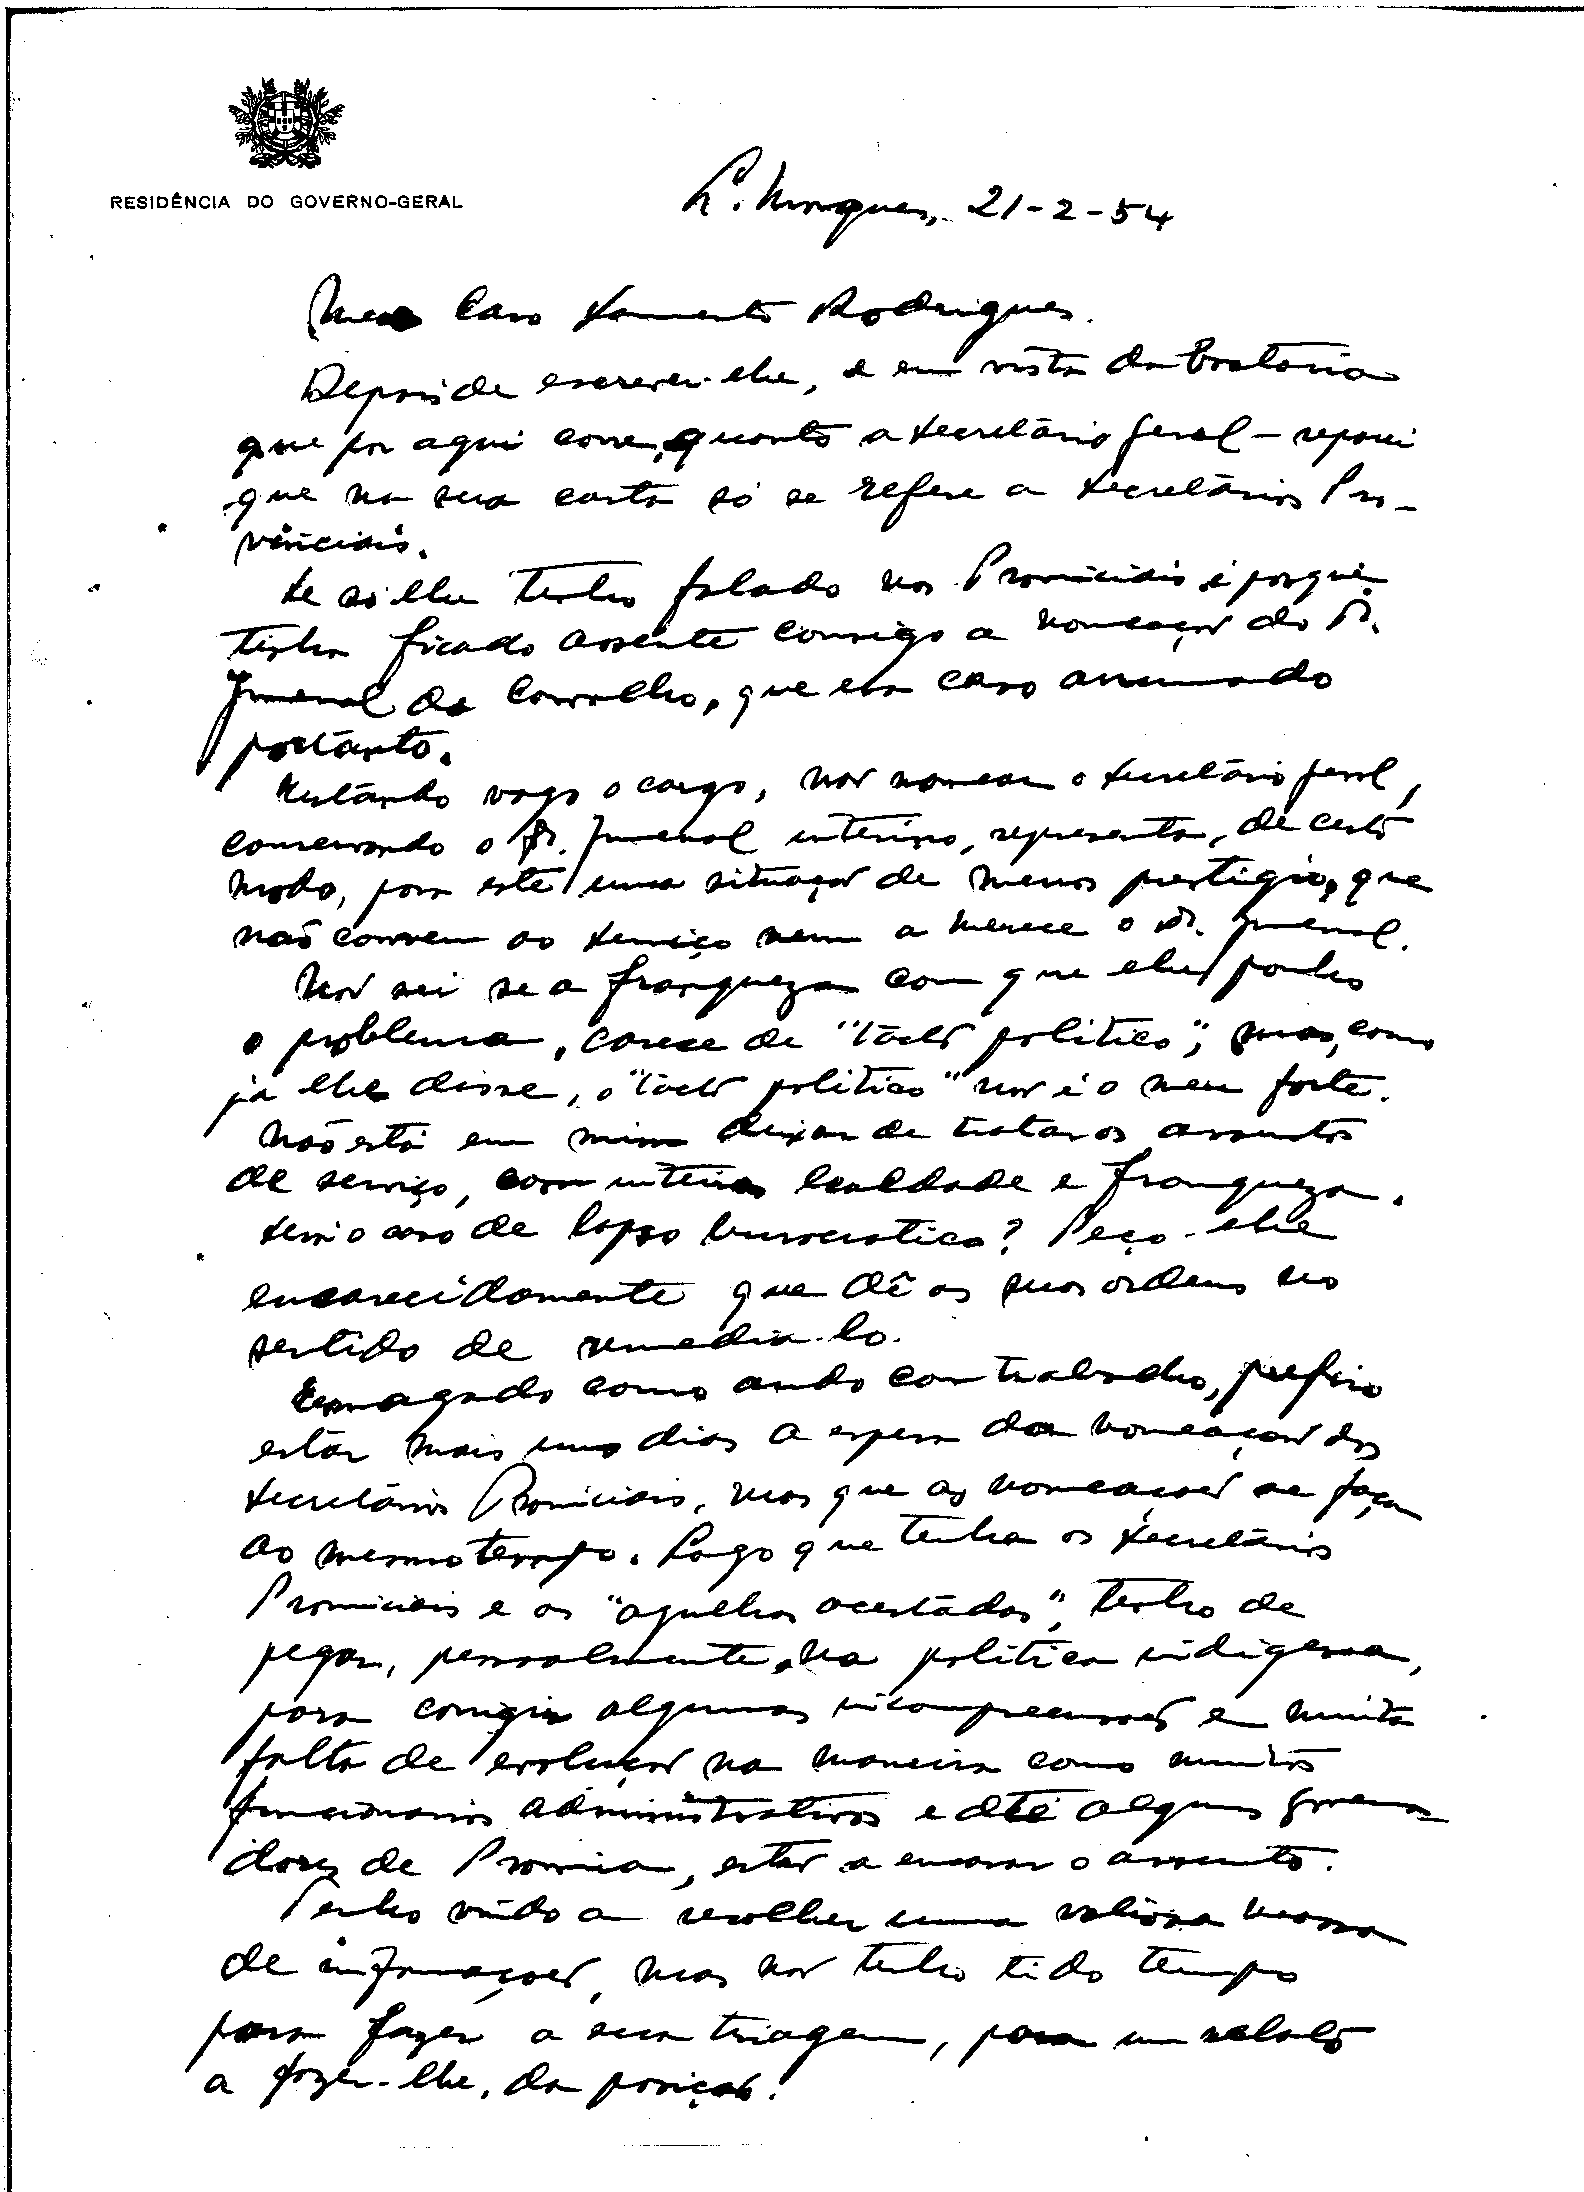 RESIDÊNCIA DO GOVERNO-GERAL
L. Marques, 21-2-54
Meu Caro Sarmento Rodrigues.
Depois de escrever-lhe, e em vista da boataria
que por aqui corre, quanto a Secretário Geral – reparei
que na sua carta só se refere a Secretários Pro-
vinciais.
Se só lhe tenho falado nos Provinciais é porque
tinha ficado assente consigo a nomeação do Dr.
Juvenal de Carvalho, que era caso arrumado
portanto.
Estando vago o cargo, não nomear o Secretário Geral,
conservando o Dr. Juvenal interino, representa, de certo
modo, para este uma situação de menos prestígio, que
não convem ao serviço nem a merece o Dr. Juvenal.
Não sei se a franqueza com que lhe ponho
o problema, carece de "tacto politico"; mas, como
já lhe disse, o "tacto politico" não é o meu forte.
Não está em mim deixar de tratar os assuntos
de serviço, com inteira lealdade e franqueza.
Será o caso de lapso burocratico? Peço-lhe
encarecidamente que dê as suas ordens no
sentido de remedia-lo.
Esmagado como ando com trabalho, prefiro
estar mais uns dias a espera da nomeação dos
Secretários Provinciais, mas que as nomeações se façam
ao mesmo tempo. Logo que tenha os Secretários
Provinciais e as "agulhas acertadas", tenho de
pegar, pessoalmente, na politica indigena,
para corrigir algumas incompreensões e muita
falta de evolução na maneira como muitos
funcionarios administrativos e até alguns governa-
dores de Provincia, estão a encarar o assunto.
Tenho vindo a recolher uma valiosa massa
de informações, mas não tenho tido tempo
para fazer a sua triagem, para um relato
a fazer-lhe, da posição.